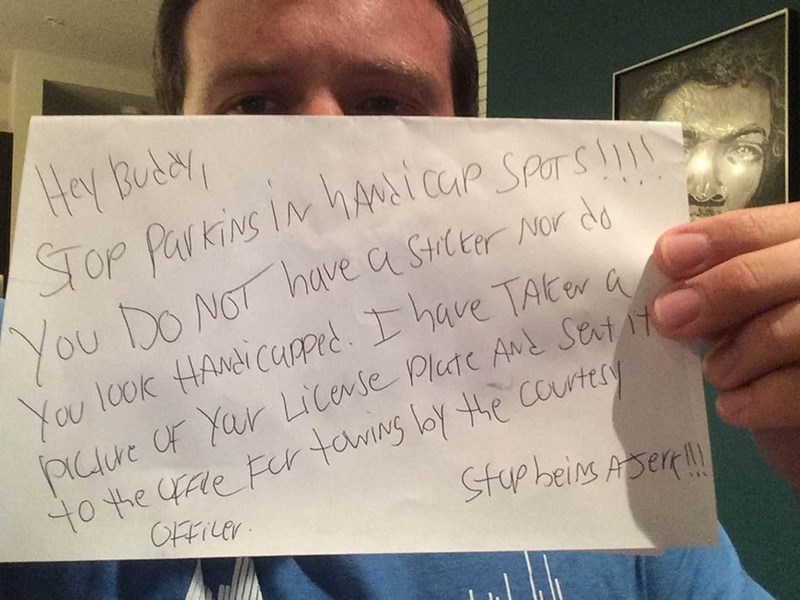 Hey Buddy,
STOP Parking in handicap spots!!!!
You DO NOT have a sticker Nor do
You look Handicapped. I have Taken a
picture of Your License Plate And Sent it
to the office For towing by the courtesy
officer.
Stop being A Jerk!!!